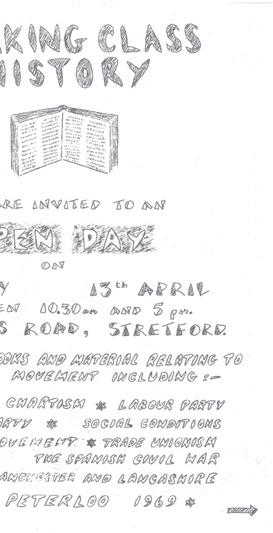 KING CLASS
HISTORY
ARE INVITED TO AN
PEN DAY
ON
Y 13th APRIL
EN 10.30am AND 5 pm.
S ROAD, STRETFORD.
OOKS AND MATERIAL RELATING TO
MOVEMENT INCLUDING :-
CHARTISM * LABOUR PARTY
ARTY * SOCIAL CONDITIONS
OVEMENT * TRADE UNIONISM
THE SPANISH CIVIL WAR
ANCHESTER AND LANCASHIRE
PETERLOO 1969 *